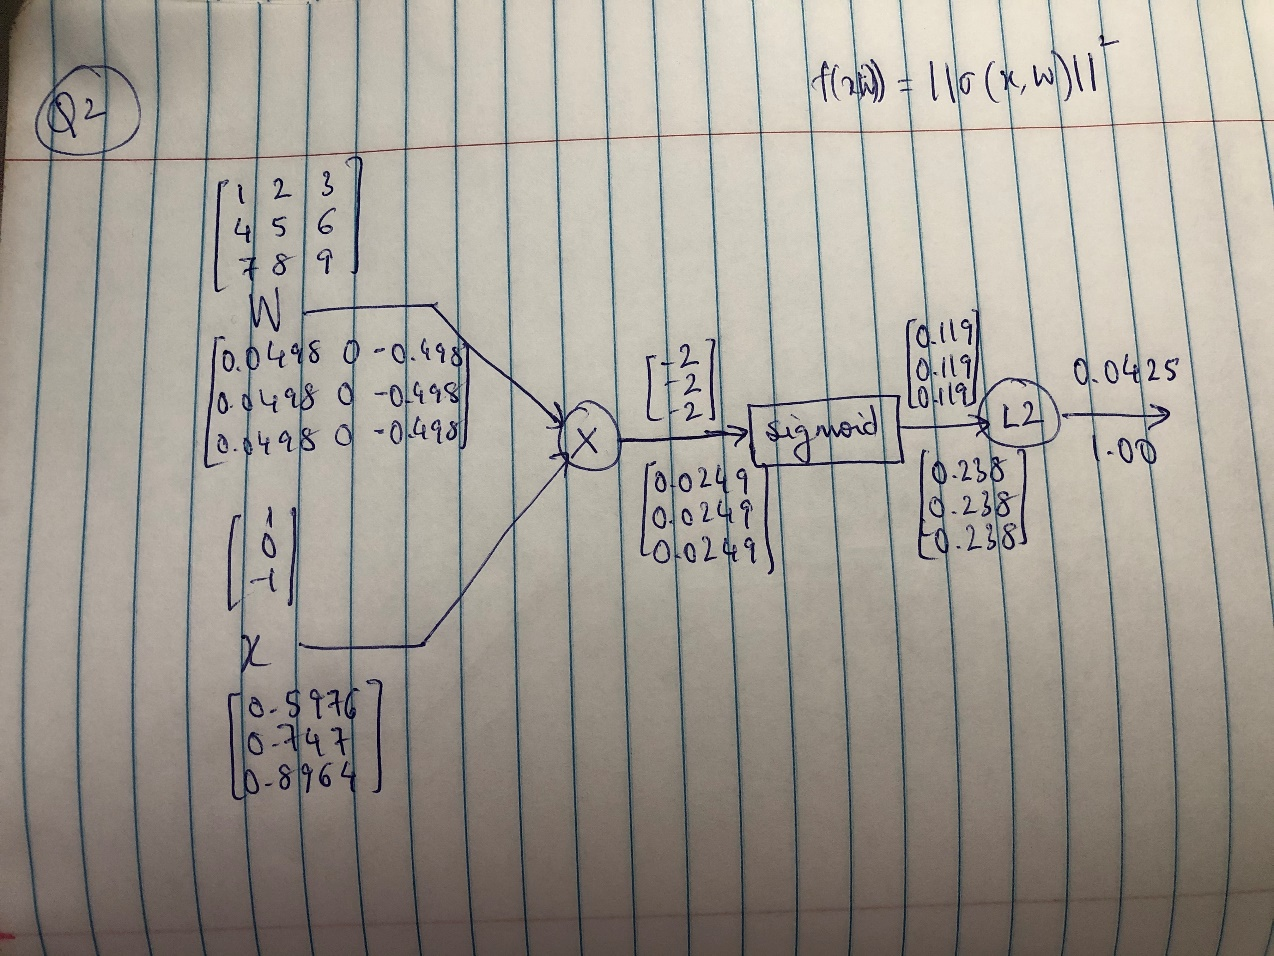 Q2
f(x,W) = ||σ(x,W)||²
[1 2 3
4 5 6
7 8 9]
W
[0.0498 0 -0.498
0.0498 0 -0.498
0.0498 0 -0.498]
[1
0
-1]
X
[0.5976
0.747
0.8964]
X
[-2
-2
-2]
[0.0249
0.0249
0.0249]
sigmoid
[0.119
0.119
0.119]
[0.238
0.238
0.238]
L2
0.0425
1.00